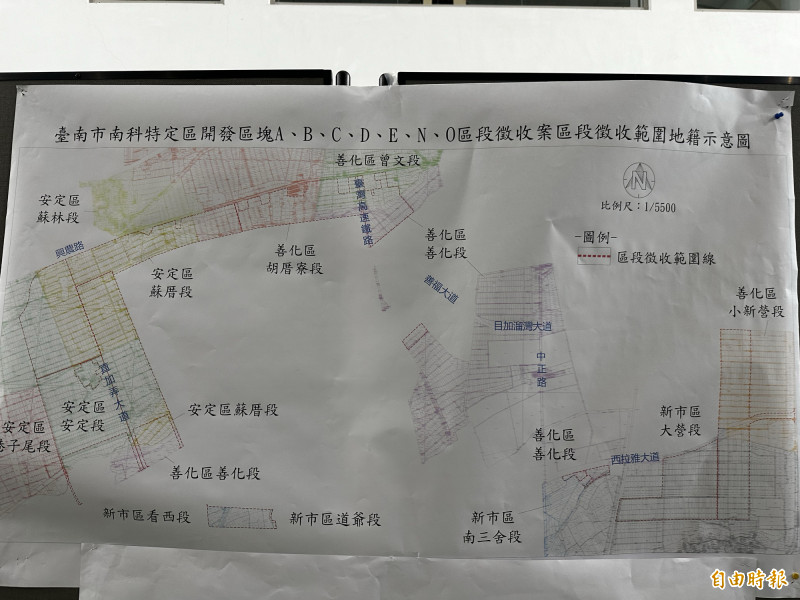 臺南市南科特定區開發區塊A、B、C、D、E、N、O區段徵收案區段徵收範圍地籍示意圖
善化區曾文段
安定區
蘇林段
臺灣高速鐵路
N
比例尺：1/5500
興農路
善化區
胡厝寮段
善化區
善化段
-圖例-
區段徵收範圍線
安定區
蘇厝段
善福大道
善化區
小新營段
目加溜灣大道
中正路
安定區
安定段
安定區蘇厝段
新市區
大營段
安定區
港子尾段
善化區
善化段
西拉雅大道
善化區善化段
新市區看西段
新市區道爺段
新市區
南三舍段
自由時報